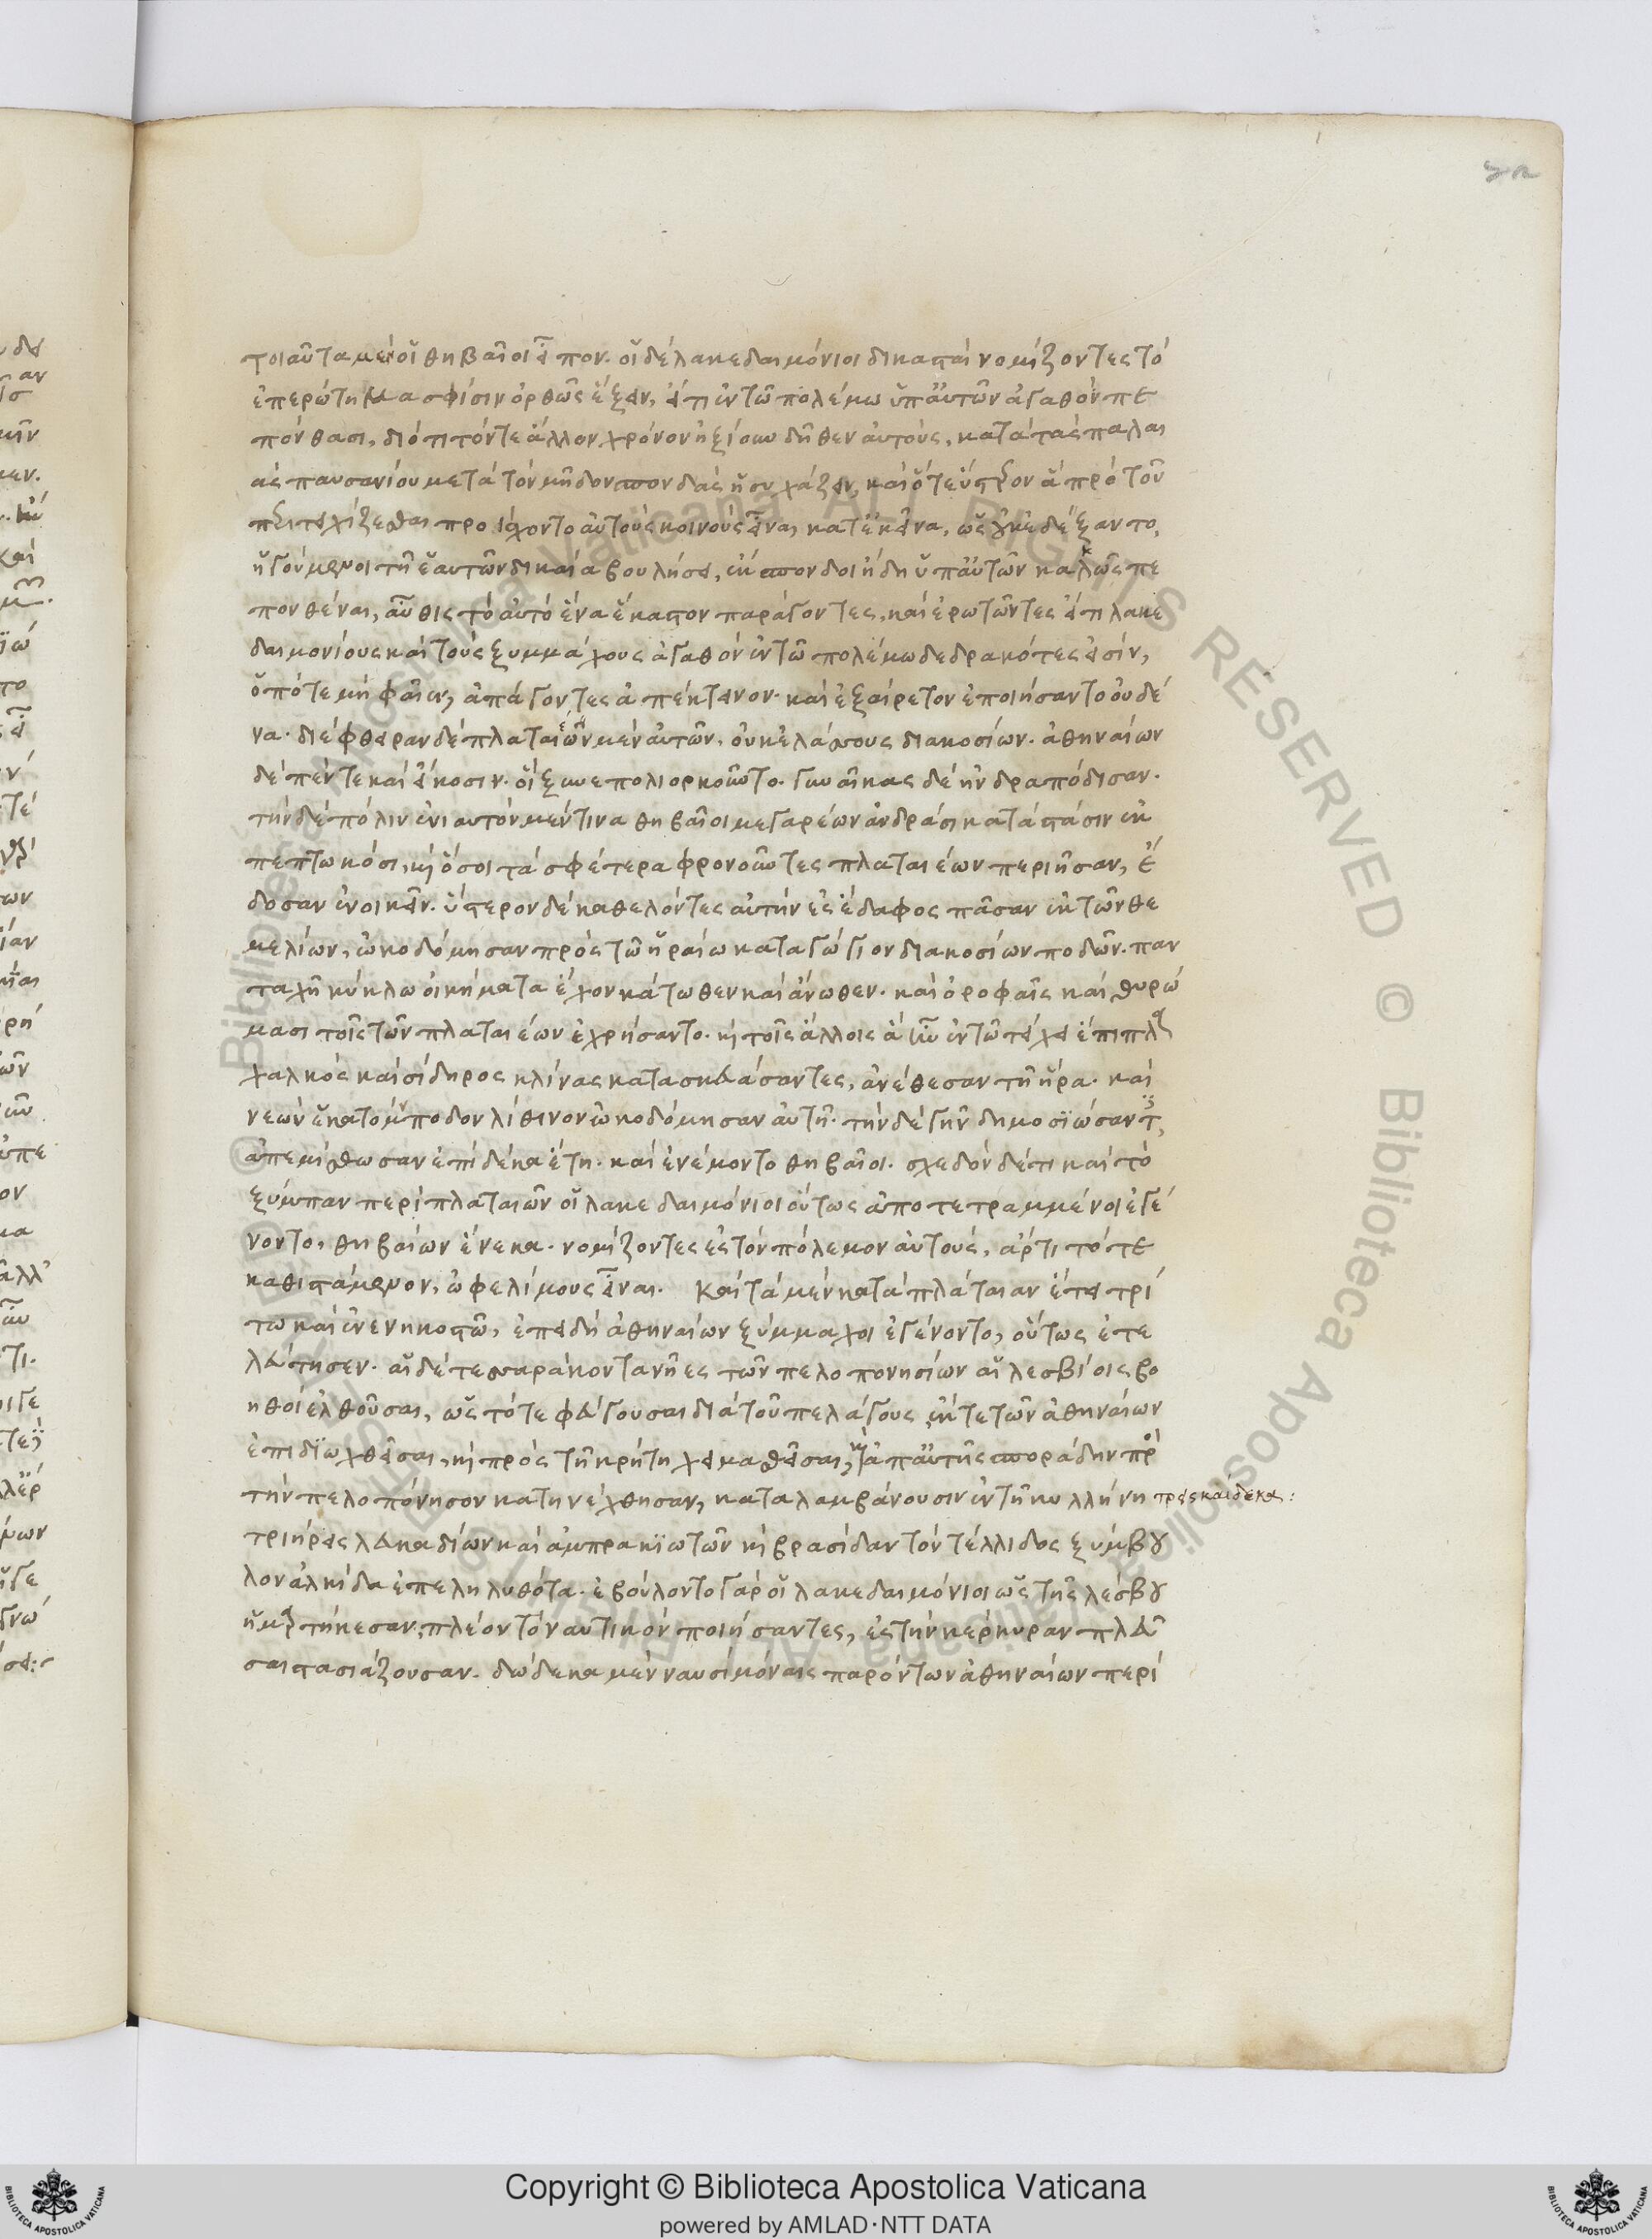 τοιαῦτα μὲν οἱ θηβαῖοι εἶπον· οἱ δὲ λακεδαιμόνιοι δικασταὶ νομίζοντες τὸ
ἐπερώτημα σφίσιν ὀρθῶς ἕξειν, εἴ τι ἐν τῶ πολέμω ὑπ' αὐτῶν ἀγαθὸν πε
πόνθασι, διότι τόν τε ἄλλον χρόνον ἠξίουν δῆθεν αὐτοὺς, κατὰ τὰς παλαι
ὰς παυσανίου μετὰ τὸν μῆδον σπονδὰς ἡσυχάζειν, καὶ ὅτε ὕστερον ἃ πρὸ τοῦ
περιτειχίζεσθαι προείχοντο αὐτοὺς κοινοὺς εἶναι κατ' ἐκεῖνα, ὡς οὐκ ἐδέξαντο,
ἡγούμενοι τῆ ἑαυτῶν δικαία βουλήσει, ἔκσπονδοι ἤδη ὑπ' αὐτῶν κακῶς πε
πονθέναι, αὖθις τὸ αὐτὸ ἕνα ἕκαστον παράγοντες, καὶ ἐρωτῶντες εἴ τι λακε
δαιμονίους καὶ τοὺς ξυμμάχους ἀγαθὸν ἐν τῶ πολέμω δεδρακότες εἰσὶν,
ὁπότε μὴ φαῖεν, ἀπάγοντες ἀπέκτεινον· καὶ ἐξαίρετον ἐποιήσαντο οὐδέ
να· διέφθειραν δὲ πλαταιῶν μὲν αὐτῶν, οὐκ ἐλάσσους διακοσίων· ἀθηναίων
δὲ πέντε καὶ εἴκοσιν· οἳ ξυνεπολιορκοῦντο· γυναῖκας δὲ ἠνδραπόδισαν·
τὴν δὲ πόλιν ἐνιαυτὸν μέν τινα θηβαῖοι μεγαρέων ἀνδράσι κατὰ στάσιν ἐκ
πεπτωκόσι, καὶ ὅσοι τὰ σφέτερα φρονοῦντες πλαταιέων περιῆσαν, ἔ
δοσαν ἐνοικεῖν· ὕστερον δὲ καθελόντες αὐτὴν ἐς ἔδαφος πᾶσαν ἐκ τῶν θε
μελίων, ὠκοδόμησαν πρὸς τῶ ἡραίω καταγώγιον διακοσίων ποδῶν· παν
ταχῆ κύκλω οἰκήματα ἔχον κάτωθεν καὶ ἄνωθεν· καὶ ὀροφαῖς καὶ θυρώ
μασι τοῖς τῶν πλαταιέων ἐχρήσαντο· καὶ τοῖς ἄλλοις ἃ ἦν ἐν τῶ τείχει ἔπιπλα
χαλκὸς καὶ σίδηρος κλίνας κατασκευάσαντες, ἀνέθεσαν τῆ ἥρα· καὶ
νεὼν ἑκατόμποδον λίθινον ὠκοδόμησαν αὐτῆ· τὴν δὲ γῆν δημοσϊώσαντες
ἀπεμίσθωσαν ἐπὶ δέκα ἔτη· καὶ ἐνέμοντο θηβαῖοι· σχεδὸν δέ τι καὶ τὸ
ξύμπαν περὶ πλαταιῶν οἱ λακεδαιμόνιοι οὕτως ἀποτετραμμένοι ἐγέ
νοντο, θηβαίων ἕνεκα· νομίζοντες ἐς τὸν πόλεμον αὐτοὺς, ἄρτι τότε
καθιστάμενον, ὠφελίμους εἶναι. Καὶ τὰ μὲν κατὰ πλάταιαν ἔτει τρί
τω καὶ ἐνενηκοστῶ, ἐπειδὴ ἀθηναίων ξύμμαχοι ἐγένοντο, οὕτως ἐτε
λεύτησεν· αἱ δὲ τεσσαράκοντα νῆες τῶν πελοπονησίων αἱ λεσβίοις βο
ηθοὶ ἐλθοῦσαι, ὡς τότε φεύγουσαι διὰ τοῦ πελάγους, ἔκ τε τῶν ἀθηναίων
ἐπιδϊωχθεῖσαι, καὶ πρὸς τῆ κρήτη χειμασθεῖσαι, καὶ ἀπ' αὐτῆς σποράδην πρὸς
τὴν πελοπόνησον κατηνέχθησαν, καταλαμβάνουσιν ἐν τῆ κυλλήνη τρεισκαίδεκα:
τριήρεις λευκαδίων καὶ ἀμπρακϊωτῶν καὶ βρασίδαν τὸν τέλλιδος ξύμβου
λον ἀλκίδα ἐπεληλυθότα· ἐβούλοντο γὰρ οἱ λακεδαιμόνιοι ὡς τῆς λέσβου
ἡμαρτήκεσαν, πλέον τὸ ναυτικὸν ποιήσαντες, ἐς τὴν κέρκυραν πλεῦ
σαι στασιάζουσαν· δώδεκα μὲν ναυσὶ μόναις παρόντων ἀθηναίων περὶ
Copyright © Biblioteca Apostolica Vaticana
powered by AMLAD·NTT DATA